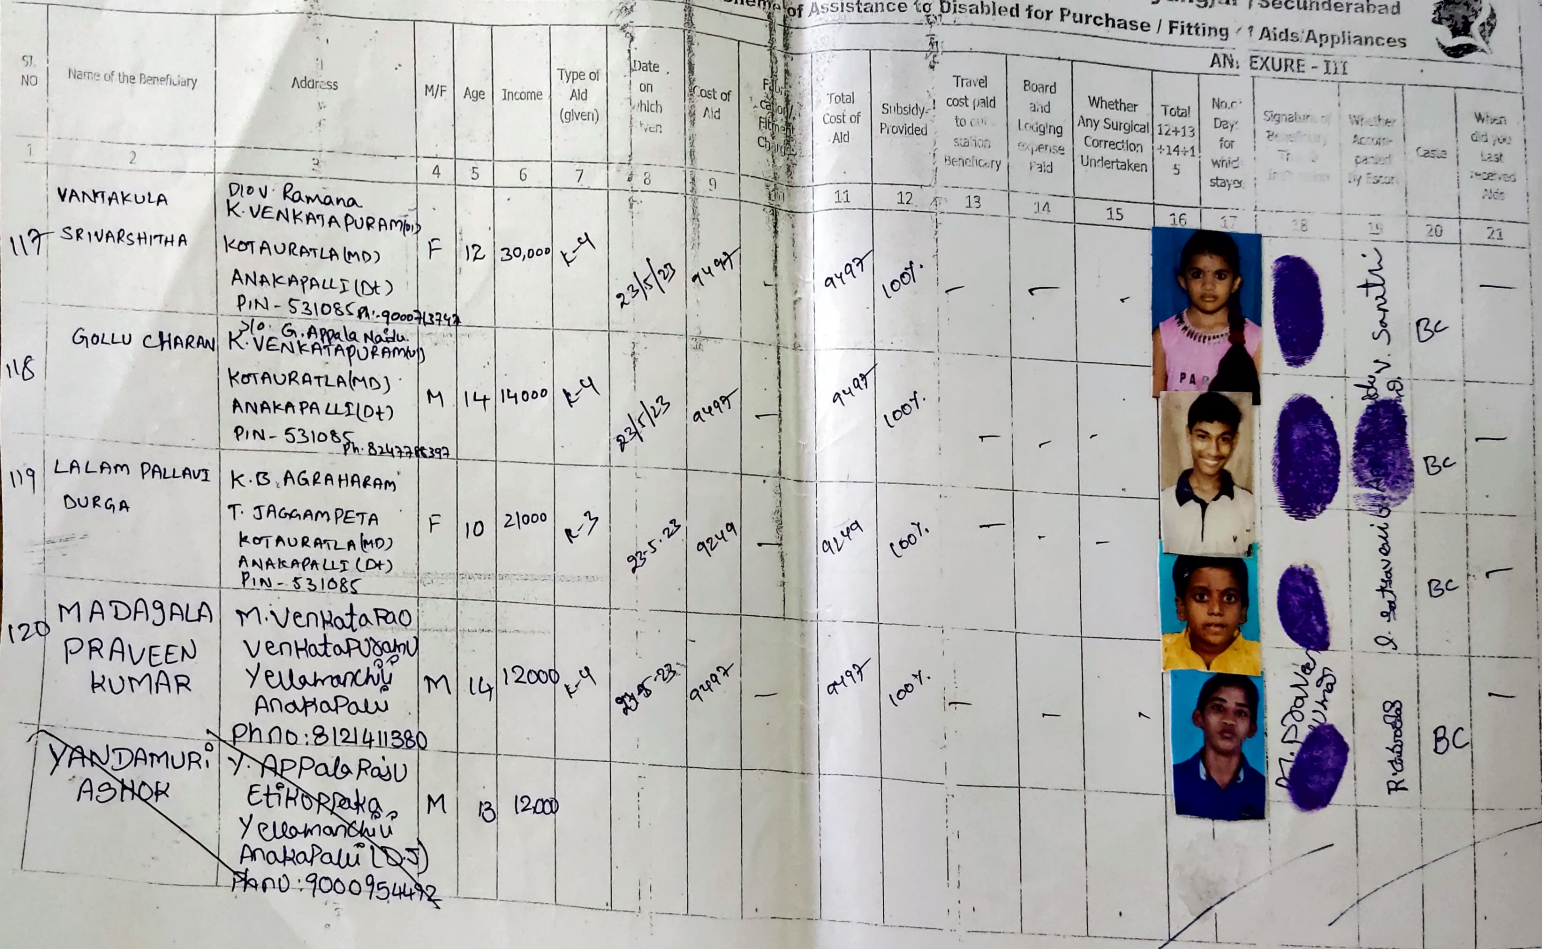 of Assistance to Disabled for Purchase / Fitting
Secunderabad
Aids/Appliances
EXURE - III
Sl. NO
Name of the Beneficiary
Address
M/F
Age
Income
Type of Aid (given)
Date on which
Cost of Aid
Total Cost of Aid
Subsidy Provided
Travel cost paid to station Beneficiary
Board and Lodging expense Paid
Whether Any Surgical Correction Undertaken
Total 12+13 +14+1 5
Day for stayed
Signature of
Whether Accom- panied by Escort
Caste
When did you Last received Aids
1 2 3 4 5 6 7 8 9 11 12 13 14 15 16 17 18 19 20 21
117
VANTAKULA
SRIVARSHITHA
D/o V. Ramana
K. VENKATAPURAM
KOTAURATLA (MD)
ANAKAPALLI (Dt)
PIN - 531085
F 12 30,000 K-4 23/5/23 9497 — 9497 100% — — — BC —
V. Sanathi
118
GOLLU CHARAN
S/o. G. Appala Naidu
K. VENKATAPURAM
KOTAURATLA (MD)
ANAKAPALLI (Dt)
PIN - 531085
M 14 14000 K-4 23/5/23 9497 — 9497 100% — — — BC —
119
LALAM PALLAVI
DURGA
K. B. AGRAHARAM
T. JAGGAMPETA
KOTAURATLA (MD)
ANAKAPALLI (Dt)
PIN - 531085
F 10 21000 K-3 23-5-23 9249 — 9249 100% — — — BC —
120
MADAGALA
PRAVEEN
KUMAR
M. Venkata Rao
Yellamanchili
Anakapalli
Ph no: 8121411380
M 14 12000 K-4 9497 — 9497 100% — — — BC —
YANDAMURi
ASHOK
Y. APPala Raju
Etikoppaka
Yellamanchili
Anakapalli
Ph no: 9000954492
M 13 12,000
PA